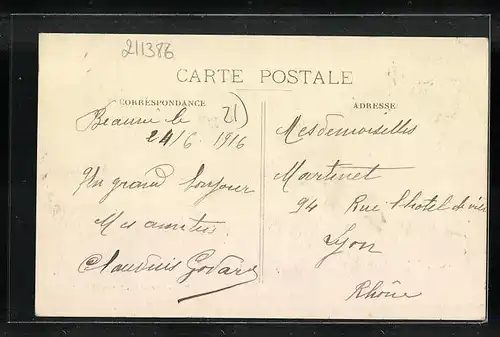 211386
CARTE POSTALE
CORRESPONDANCE
ADRESSE
Beaune le
21)
24/6 1916
Un grand bonjour
Mes amitiés
Claudius Godard
Mesdemoiselles
Martinet
94 Rue l'hotel de ville
Lyon
Rhône